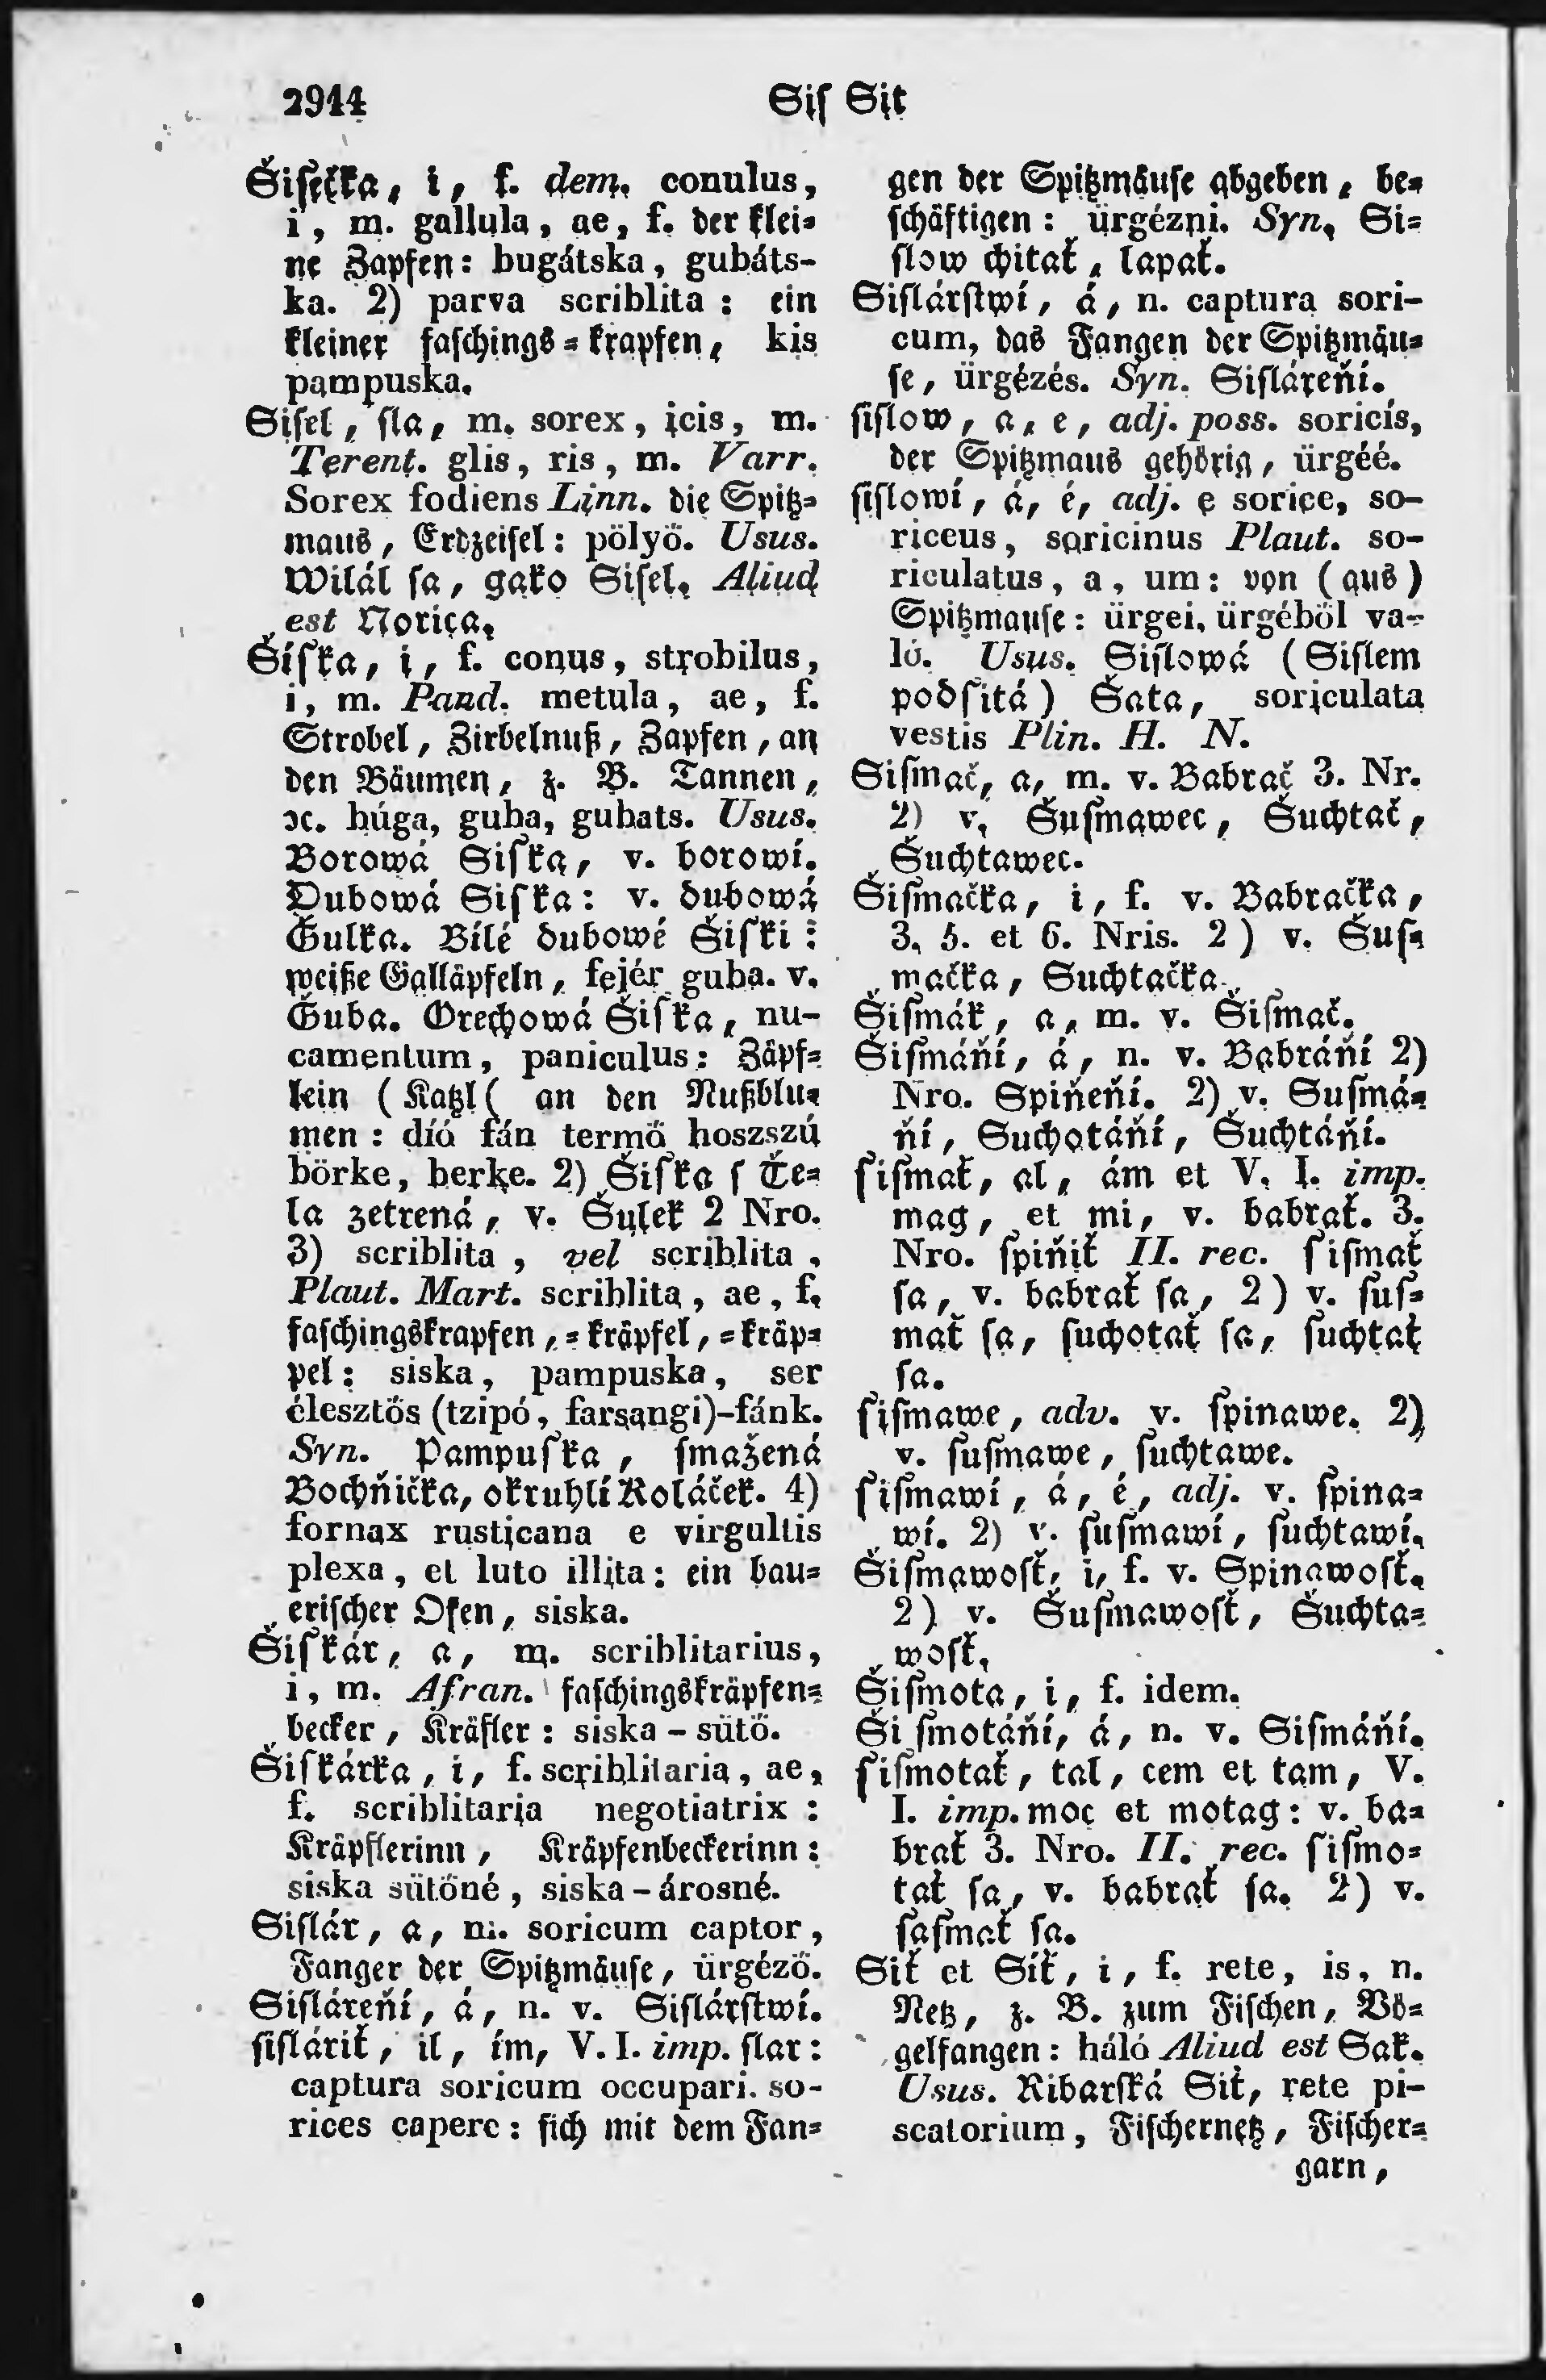 2944
Sis Sit
Šišečka, i, f. dem. conulus,
i, m. gallula, ae, f. der klei-
ne Zapfen: bugátska, gubáts-
ka. 2) parva scriblita: ein
kleiner faschings-krapfen, kis
pampuska.
Sisel, sla, m. sorex, icis, m.
Terent. glis, ris, m. Varr.
Sorex fodiens Linn. die Spitz-
maus, Erdzeisel: pölyö. Usus.
Wilál sa, gako Sisel. Aliud
est Norica.
Šiška, i, f. conus, strobilus,
i, m. Pand. metula, ae, f.
Strobel, Zirbelnuß, Zapfen, an
den Bäumen, z. B. Tannen,
ꝛc. húga, guba, gubats. Usus.
Borowá Siska, v. borowí.
Dubowá Siska: v. dubowá
Gulka. Bílé dubowé Šiški:
weiße Galläpfeln, fejér guba. v.
Guba. Orechowá Šiška, nu-
camentum, paniculus: Zäpf-
lein (Katzl( an den Nußblu-
men: díó fán termő hoszszú
börke, berke. 2) Šiška s Te-
la zetrená, v. Šulek 2 Nro.
3) scriblita, vel scriblita,
Plaut. Mart. scriblita, ae, f.
faschingskrapfen, -kräpfel, -kräp-
pel: siska, pampuska, ser
élesztős (tzipó, farsangi)-fánk.
Syn. Pampuska, smažená
Bochňička, okruhlí Koláček. 4)
fornax rusticana e virgultis
plexa, et luto illita: ein bau-
erischer Ofen, siska.
Šiškár, a, m. scriblitarius,
i, m. Afran. faschingskräpfen-
becker, Kräfler: siska-sütő.
Šiškárka, i, f. scriblitaria, ae,
f. scriblitaria negotiatrix:
Kräpflerinn, Kräpfenbeckerinn:
siska sütőné, siska-árosné.
Sislár, a, m. soricum captor,
Fanger der Spitzmäuse, ürgéző.
Sisláreňí, á, n. v. Sislárstwí.
sisláriť, il, ím, V. I. imp. slar:
captura soricum occupari. so-
rices capere: sich mit dem Fan-
gen der Spitzmäuse abgeben, be-
schäftigen: ürgézni. Syn. Si-
slow chitať, lapať.
Sislárstwí, á, n. captura sori-
cum, das Fangen der Spitzmäu-
se, ürgézés. Syn. Sisláreňí.
sislow, a, e, adj. poss. soricis,
der Spitzmaus gehörig, ürgéé.
sislowí, á, é, adj. e sorice, so-
riceus, soricinus Plaut. so-
riculatus, a, um: von (aus)
Spitzmause: ürgei, ürgéből va-
ló. Usus. Sislowá (Sislem
podsitá) Šata, soriculata
vestis Plin. H. N.
Sismač, a, m. v. Babrač 3. Nr.
2) v. Šusmawec, Šuchtač,
Šuchtawec.
Šismačka, i, f. v. Babračka,
3. 5. et 6. Nris. 2) v. Šus-
mačka, Suchtačka.
Šismák, a, m. v. Šismač.
Šismáňí, á, n. v. Babráňí 2)
Nro. Spiňeňí. 2) v. Susmá-
ňí, Suchotáňí, Šuchtáňí.
šismať, al, ám et V. I. imp.
mag, et mi, v. babrať. 3.
Nro. spiňiť II. rec. šismať
sa, v. babrať sa, 2) v. šus-
mať sa, suchotať sa, suchtať
sa.
šismawe, adv. v. špinawe. 2)
v. susmawe, suchtawe.
šismawí, á, é, adj. v. špina-
wí. 2) v. šusmawí, suchtawí.
Šismawosť, i, f. v. Spinawosť.
2) v. Šusmawosť, Šuchta-
wosť.
Šismota, i, f. idem.
Ši smotáňí, á, n. v. Sismáňí.
šismotať, tal, cem et tam, V.
I. imp. moc et motag: v. ba-
brať 3. Nro. II. rec. sismo-
tať sa, v. babrať sa. 2) v.
sasmať sa.
Siť et Síť, i, f. rete, is, n.
Netz, z. B. zum Fischen, Vö-
gelfangen: háló Aliud est Sak.
Usus. Ribarská Siť, rete pi-
scatorium, Fischernetz, Fischer-
garn,